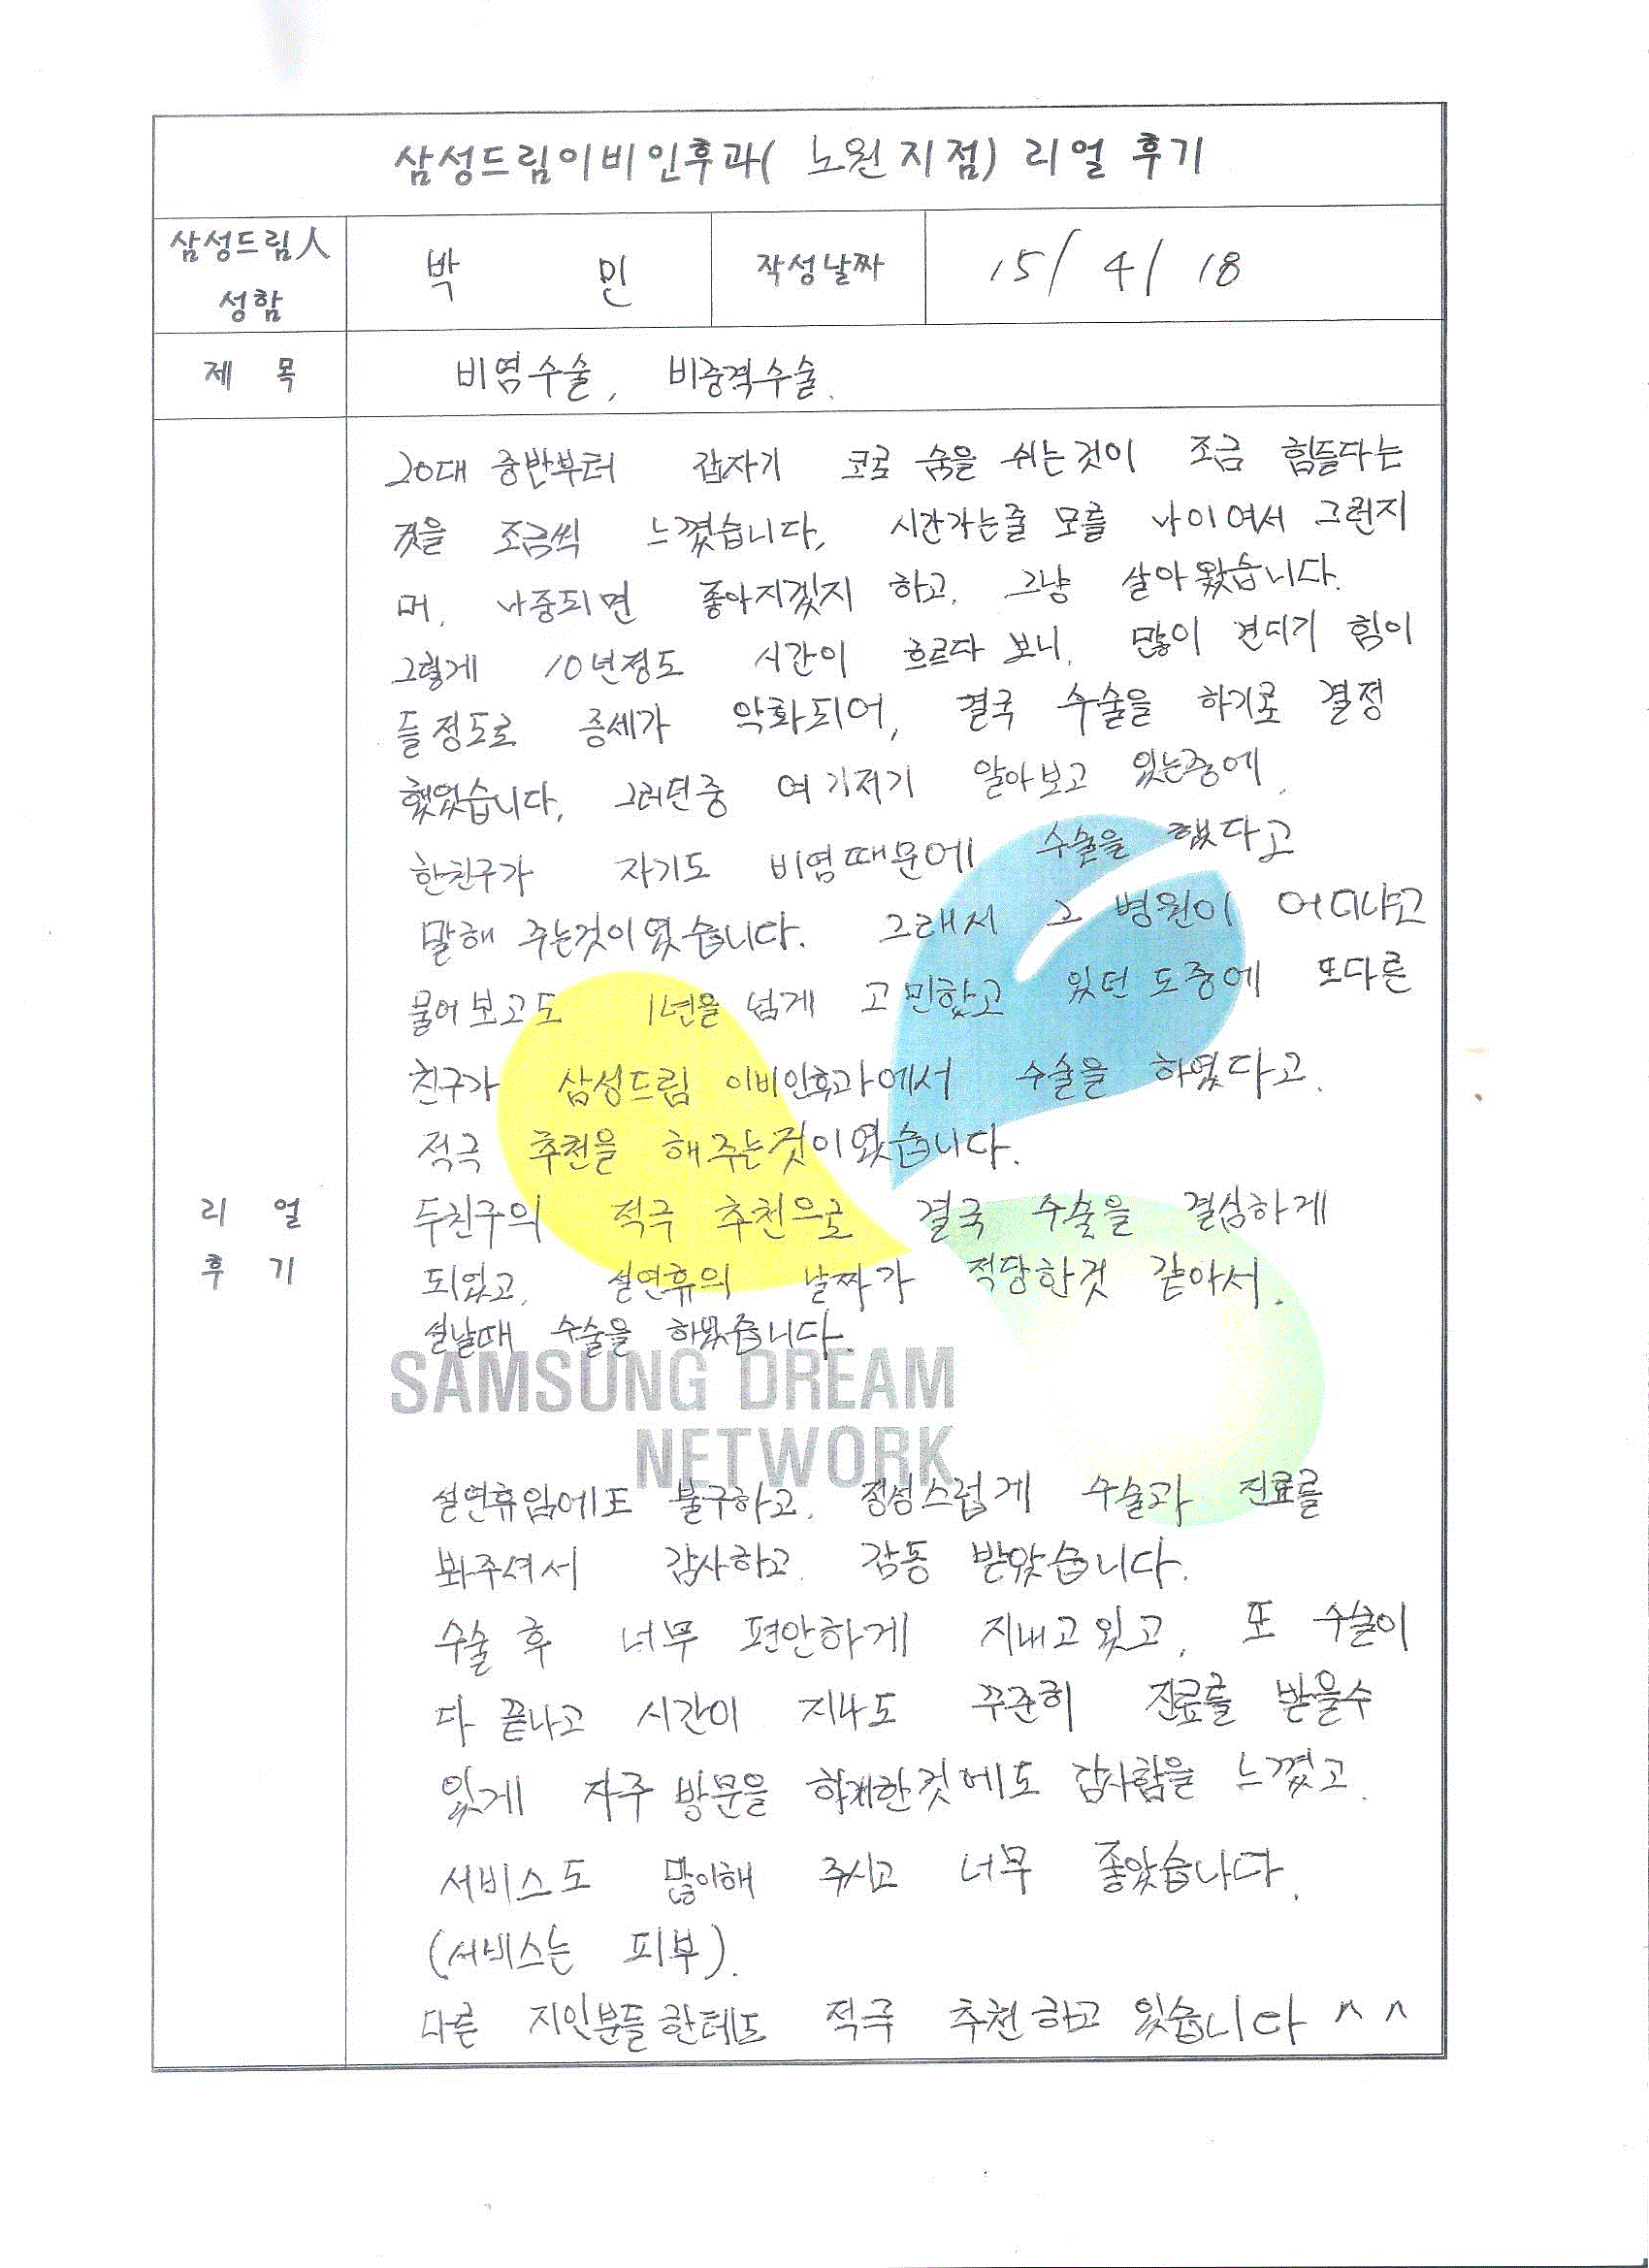 삼성드림이비인후과( 노원지점) 리얼 후기
삼성드림人 성함
박 민
작성날짜
15/ 4/ 18
제 목
비염수술, 비중격수술.
리 얼 후 기
20대 중반부터 갑자기 코로 숨을 쉬는것이 조금 힘들다는
것을 조금씩 느꼈습니다. 시간가는줄 모를 나이여서 그런지
머, 나중되면 좋아지겠지 하고, 그냥 살아왔습니다.
그렇게 10년정도 시간이 흐르다 보니, 많이 견디기 힘이
들정도로 증세가 악화되어, 결국 수술을 하기로 결정
했었습니다. 그러던중 여기저기 알아보고 있는중에,
한친구가 자기도 비염때문에 수술을 했다고
말해 주는것이였습니다. 그래서 그 병원이 어디냐고
물어보고도 1년을 넘게 고민핬고 있던 도중에 또다른
친구가 삼성드림 이비인후과에서 수술을 하였다고.
적극 추천을 해주는것이였습니다.
두친구의 적극 추천으로 결국 수술을 결심하게
되었고, 설연휴의 날짜가 적당한것 같아서,
설날때 수술을 하였습니다.
SAMSUNG DREAM
NETWORK
설연휴임에도 불구하고, 정성스럽게 수술과 진료를
봐주셔서 감사하고, 감동 받았습니다.
수술 후 너무 편안하게 지내고있고, 또 수술이
다 끝나고 시간이 지나도 꾸준히 진료를 받을수
있게 자주 방문을 감사함을 느꼈고,
서비스도 많이해 주시고 너무 좋았습니다.
(서비스는 피부).
다른 지인분들한테도 적극 추천하고 있습니다 ^^